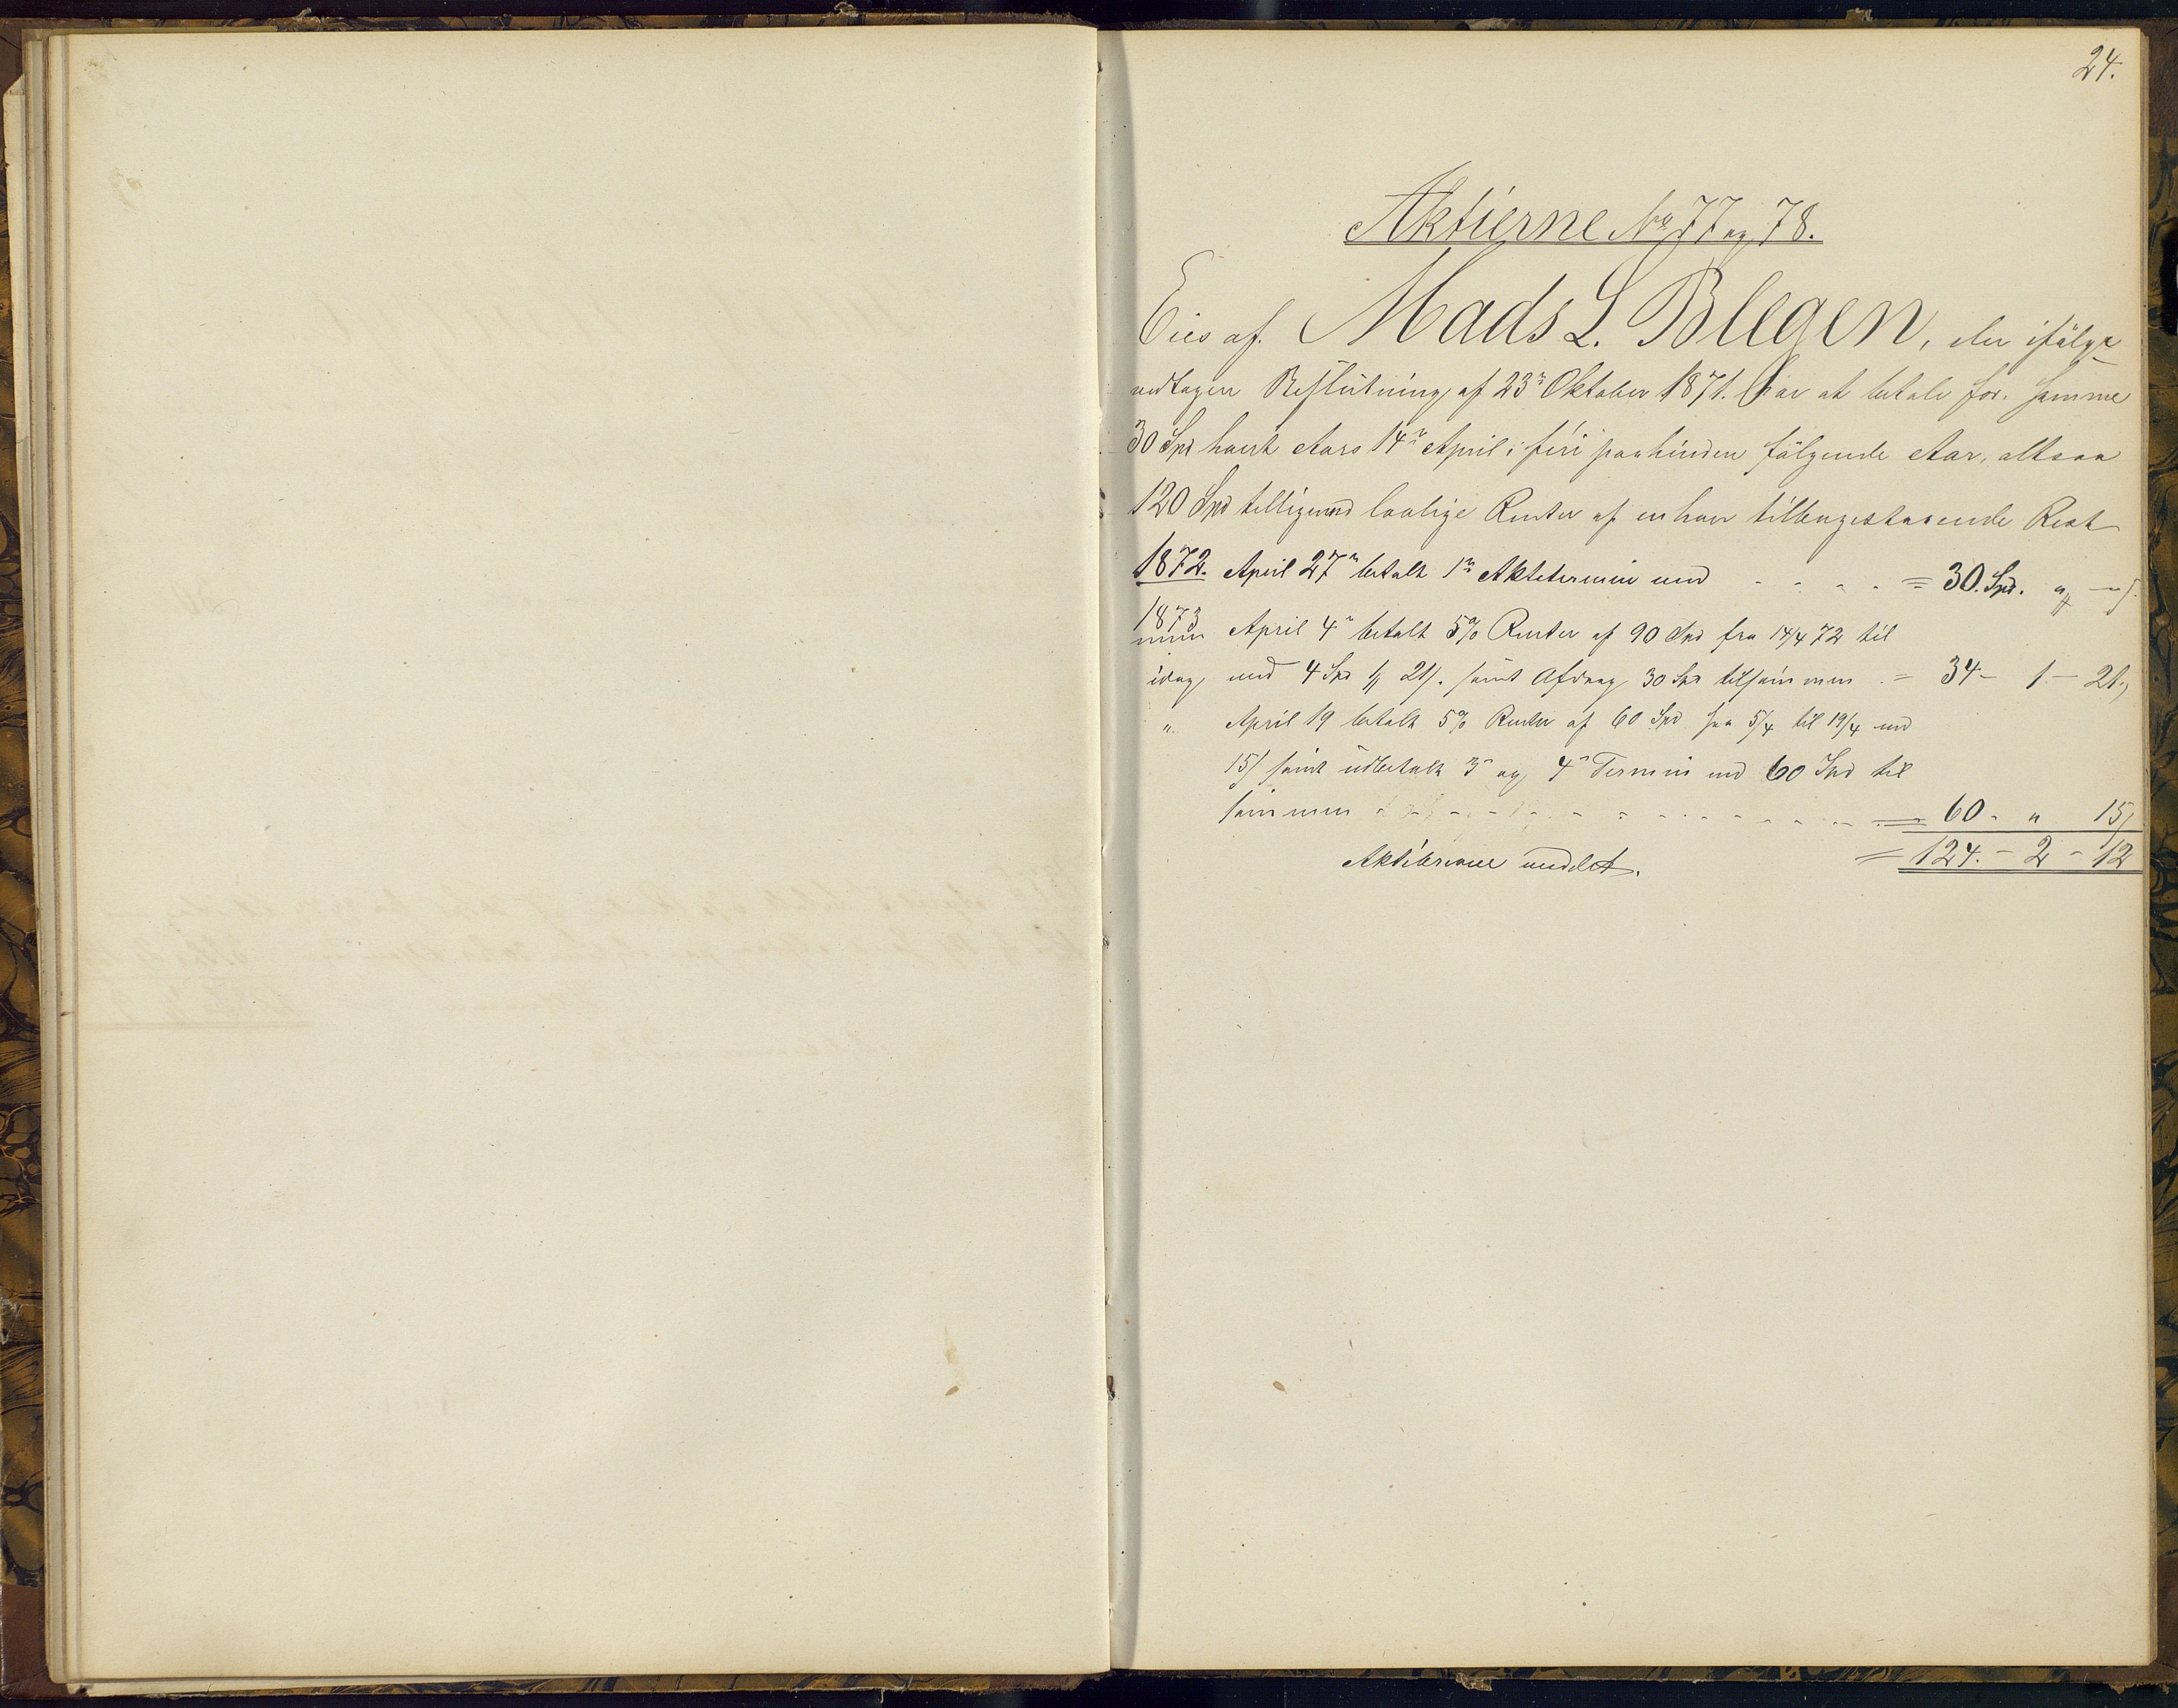 24.
Aktierne No 77 og 78.
Eies af. Mads L. Blegen, der ifölge
vedtagen Beslutning af 23de Oktober 1871. har at betale for samme
30 Spd hvert Aars 14de April i fire paahinden fölgende Aar, altsaa
120 Spd tilligemed lovlige Renter af enhver tilbagestaaende Rest
1872. April 27de betalt 1ste Aktietermin med - - - - = 30. Spd. " - " s.
1873 April 4de betalt 5% Renter af 90 Spd fra 14/4 72 til
idag med 4 Spd 1 21 s. samt Afdrag 30 Spd tilsammen = 34 - 1 - 21 s
" April 19 betalt 5% Renter af 60 Spd fra 5/4 til 19/4 med
15 s samt udbetalt 3de og 4de Termin med 60 Spd til
sammen - - - - - - - - - - = 60 - " 15 s
Aktiebrevene meddelt. = 124. - 2 - 12